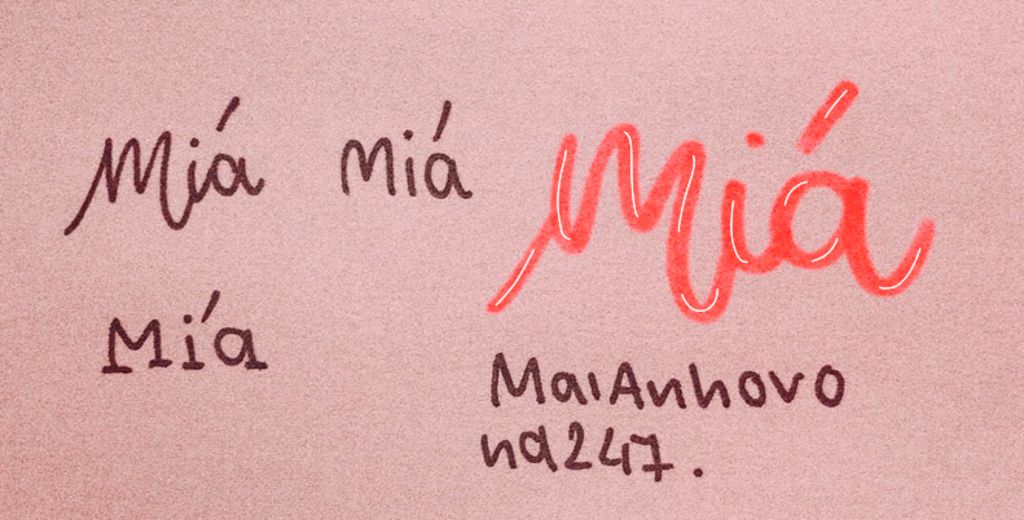 Miá miá Miá
Miá
MaiAnhovo
na247.